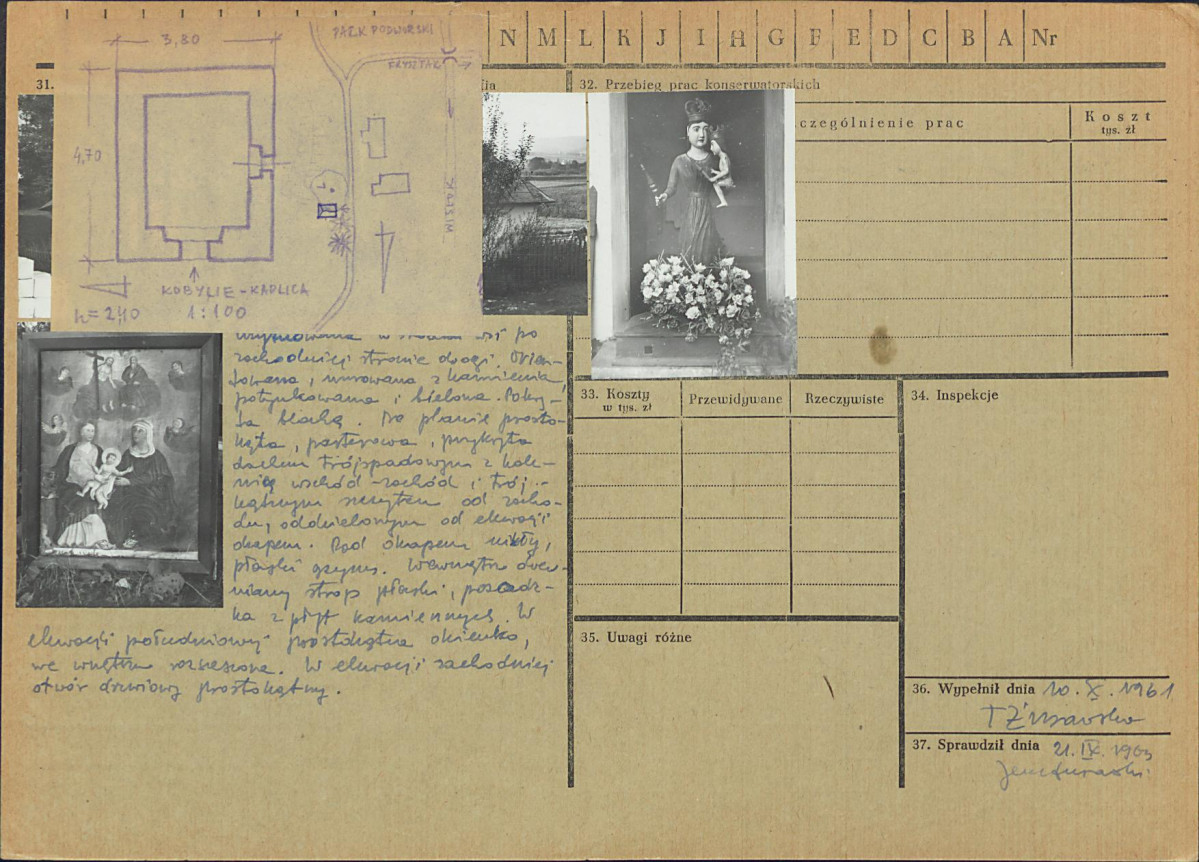 N M L K J I H G F E D C B A Nr
3,80
PARK PODWORSKI
FRYSZTAK
4,70
KOBYLIE-KAPLICA
h=2,40 1:100
31.
32. Przebieg prac konserwatorskich
czególnienie prac
Koszt
tys. zł
po
zachodniej stronie drogi. Orien-
towana, murowana z kamienia,
potynkowana i bielona. Pokry-
ta blachą. Na planie prosto-
kąta, parterowa, przykryta
dachem trójspadowym z kale-
nicą wschód-zachód i trój-
kątnym szczytem od zacho-
du, oddzielonym od elewacji
okapem. Pod okapem nikły,
płaski gzyms. Wewnątrz drew-
niany strop płaski, posadz-
ka z płyt kamiennych. W
elewacji południowej prostokątne okienko,
we wnętrzu rozszerzone. W elewacji zachodniej
otwór drzwiowy prostokątny.
33. Koszty
w tys. zł
Przewidywane
Rzeczywiste
34. Inspekcje
35. Uwagi różne
36. Wypełnił dnia 10.X.1961
37. Sprawdził dnia 21.IX.1963